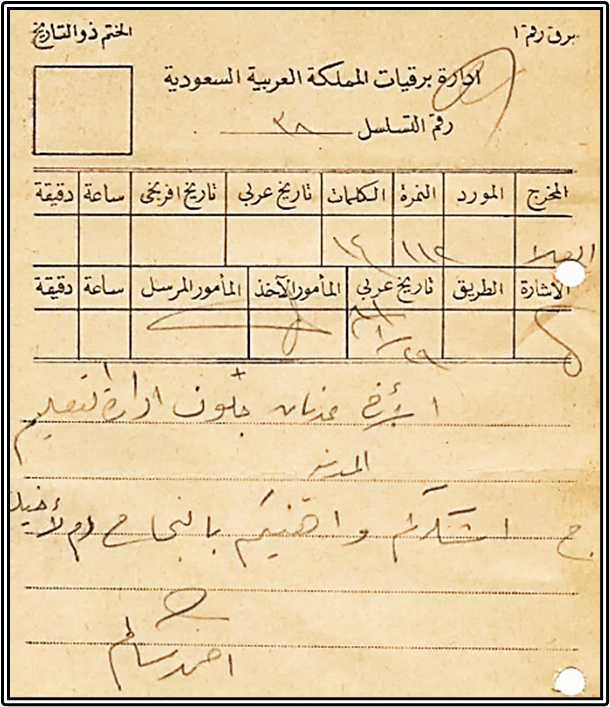 برق رقم ١
الختم ذو التاريخ
ادارة برقيات المملكة العربية السعودية
رقم التسلسل ٣٨
المخرج المورد النمرة الكلمات تاريخ عربي تاريخ افرنجي ساعة دقيقة
١١٢ ١٤
الاشارة الطريق تاريخ عربي المأمور الآخذ المأمور المرسل ساعة دقيقة
٢٩/١
الأخ عدنان جلون ادارة التعليم
المدينه
ج اشكركم واهنيكم بالنجاح دم لأخيك
احمد سالم